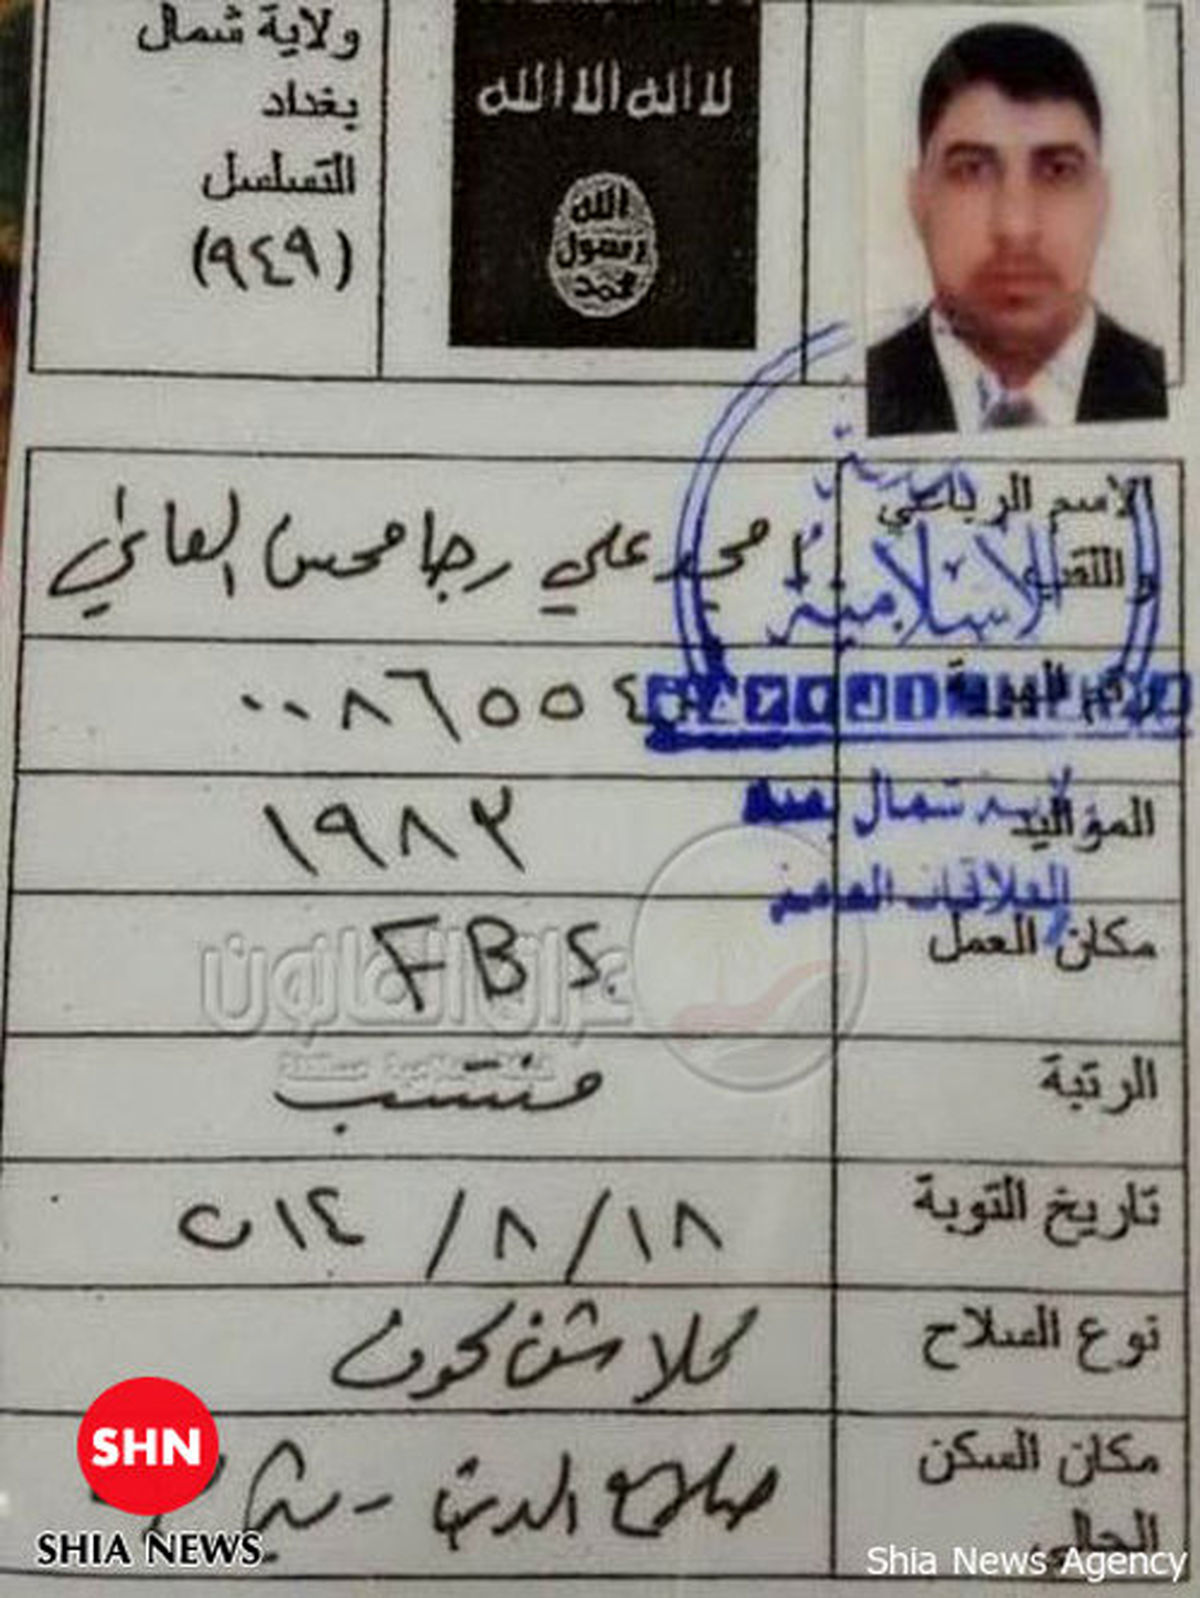 ولاية شمال
بغداد
التسلسل
(٩٤٩)
لا اله الا الله
الله
رسول
محمد
الاسم الرباعي
واللقب
محمد علي رجا محسن
الاسلامية
رقم الهوية
٠٠٨٦٥٥٤
المواليد
١٩٨٣
ولاية شمال بغداد
العلاقات العامة
مكان العمل
FBS
الرتبة
منتسب
تاريخ التوبة
١٨/٨/٢٠١٤
نوع السلاح
كلاشنكوف
مكان السكن
الحالي
صلاح الدين -
SHN
SHIA NEWS
Shia News Agency